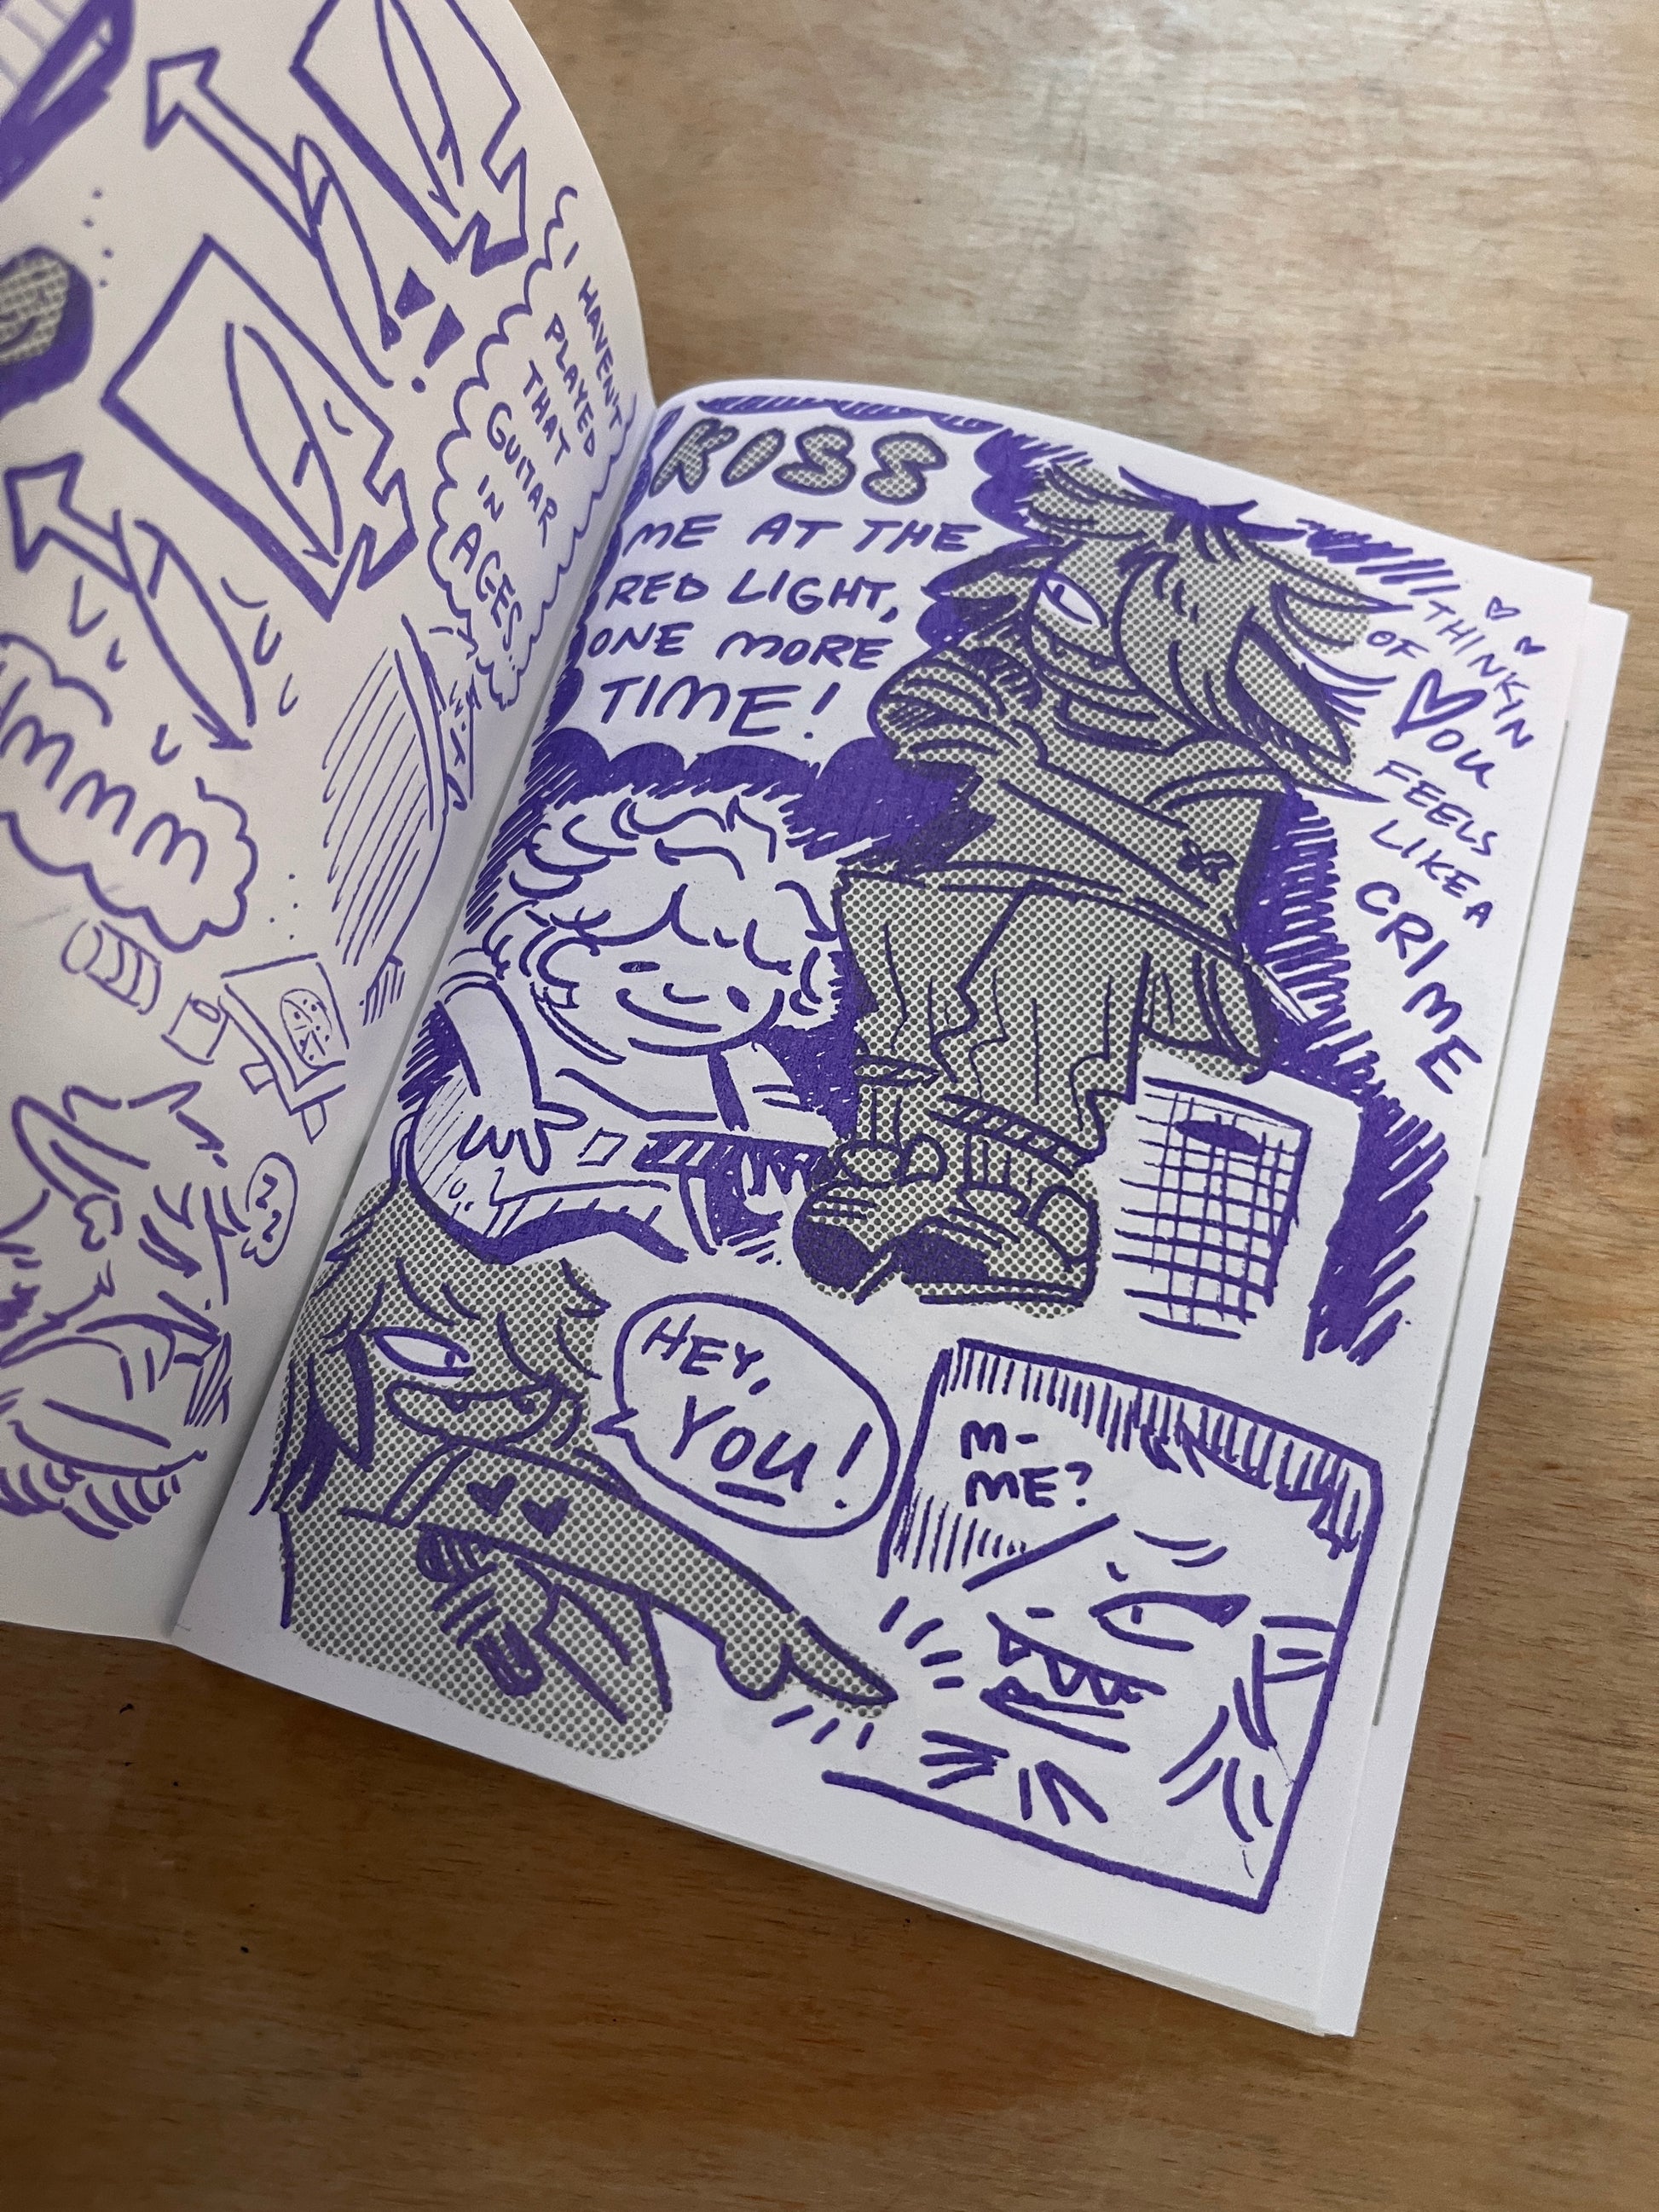 I
HAVEN'T
PLAYED
THAT
GUITAR
IN
AGES..
MMMM
Z
Z
Z
KISS
ME AT THE
RED LIGHT,
ONE MORE
TIME!
THINKIN
OF
YOU
FEELS
LIKE A
CRIME
HEY,
YOU!
M-
ME?